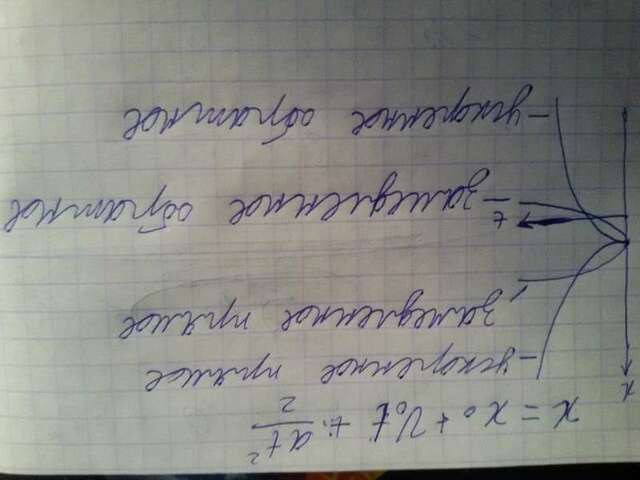 x = x₀ + V₀t ± at²/2
x
- ускоренное прямое
замедленное прямое
t
- замедленное обратное
- ускоренное обратное